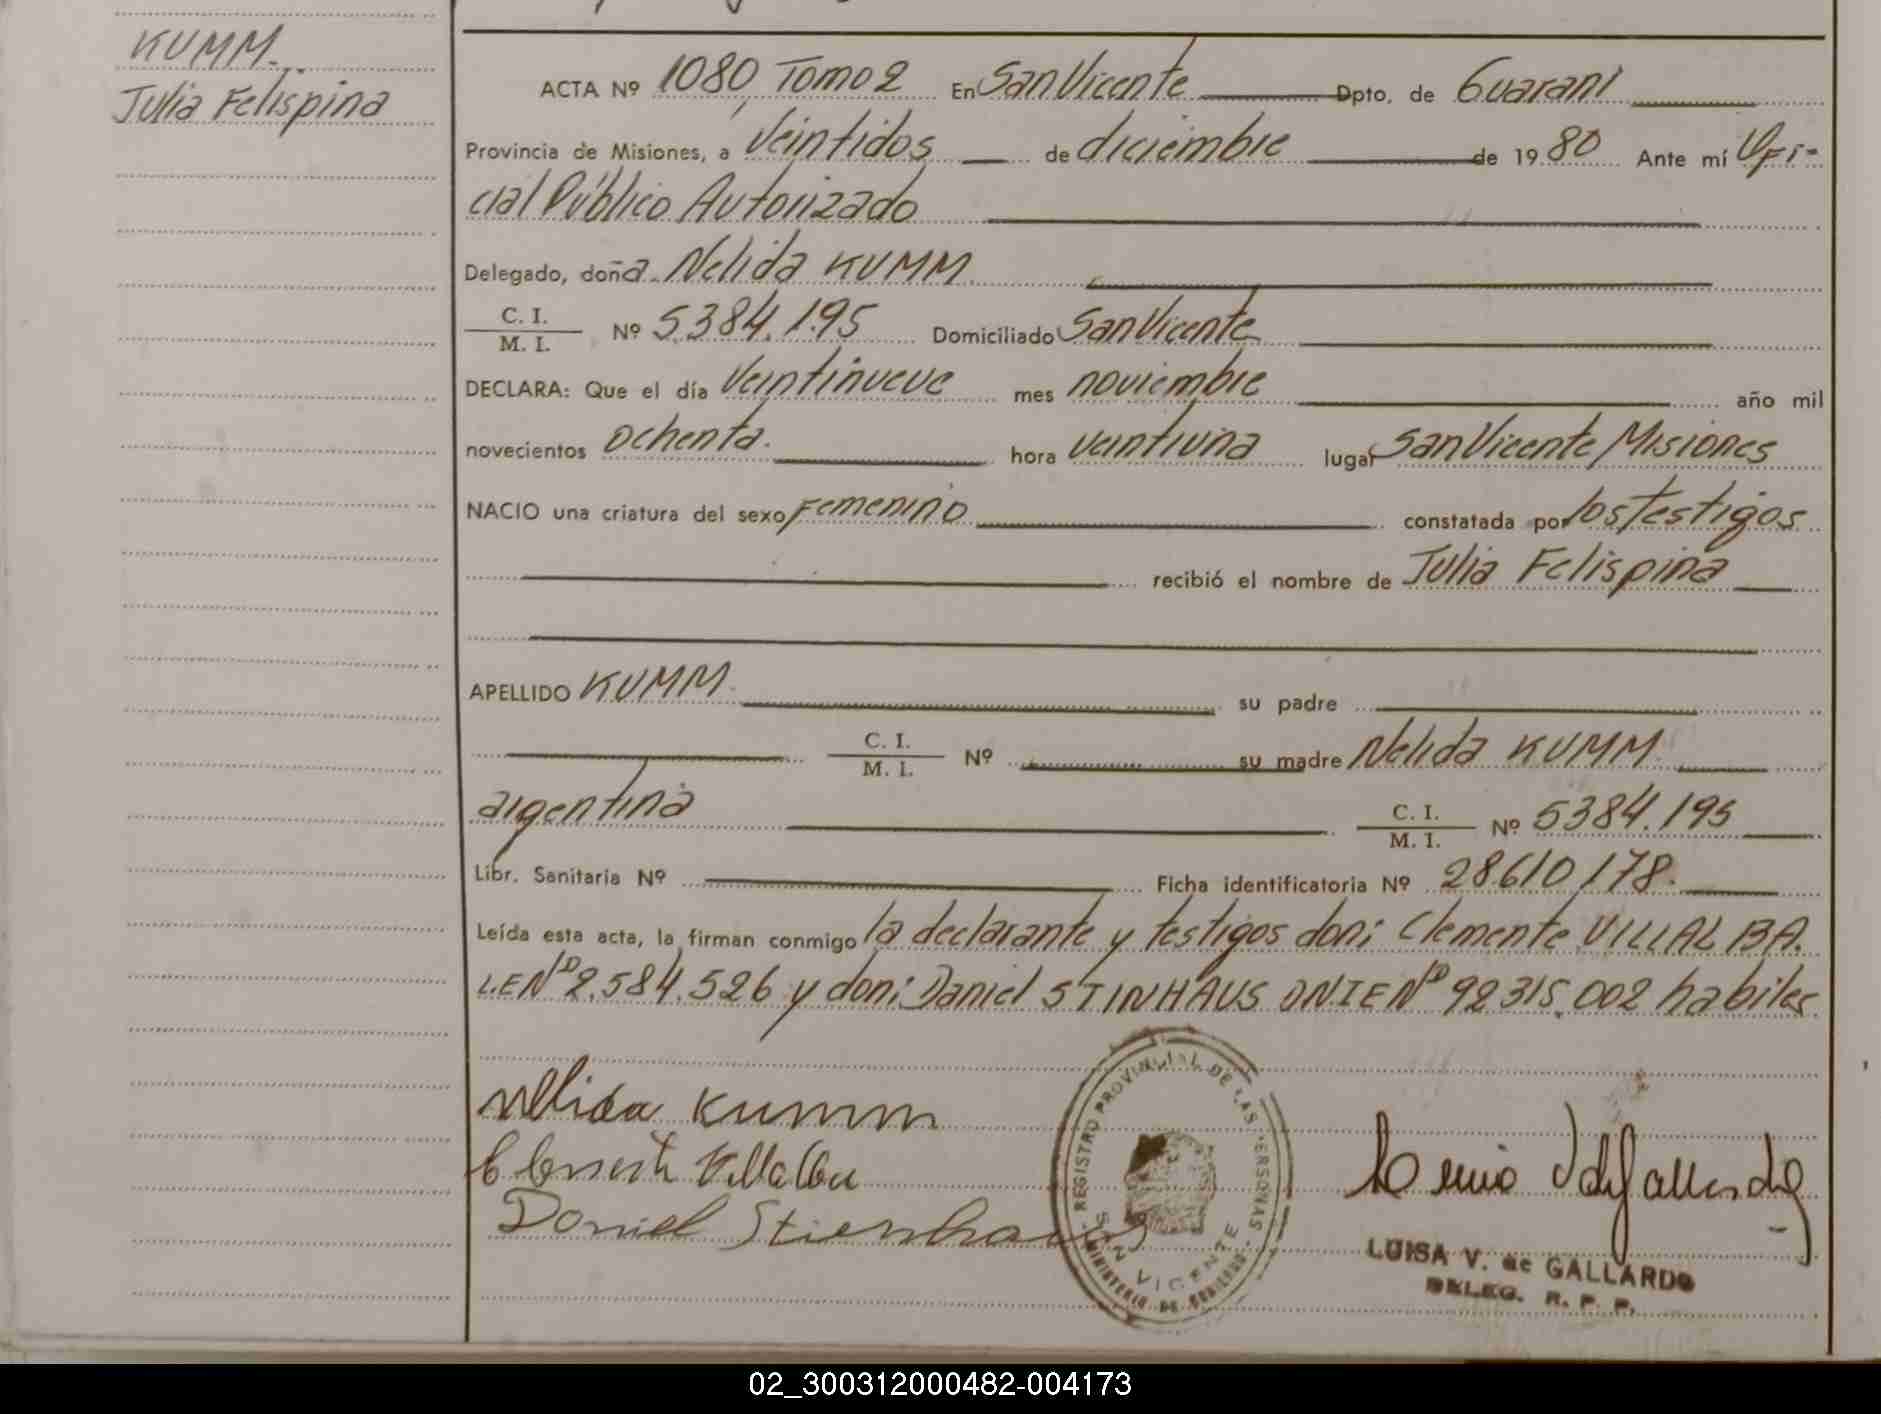 KUMM.
Julia Felispina
ACTA Nº 1080 Tomo 2 En San Vicente Dpto. de Guaraní
Provincia de Misiones, a Veintidos de diciembre de 1980 Ante mí Ofi-
cial Público Autorizado
Delegado, doña Nelida KUMM
C. I.
M. I. Nº 5384.195 Domiciliado San Vicente
DECLARA: Que el día Veintinueve mes noviembre año mil
novecientos ochenta. hora veintiuna lugar San Vicente Misiones
NACIO una criatura del sexo Femenino constatada por los testigos
recibió el nombre de Julia Felispina
APELLIDO KUMM. su padre
C. I.
M. I. Nº su madre Nelida KUMM.
argentina C. I.
M. I. Nº 5384.195
Libr. Sanitaria Nº Ficha identificatoria Nº 28610178.
Leída esta acta, la firman conmigo la declarante y testigos don: Clemente VILLALBA.
L.E Nº 2.584.526 y don: Daniel STINHAUS DNIE Nº 92315.002 habiles
Nelida Kumm
Clemente Villalba
Daniel Stienhaus
REGISTRO PROVINCIAL DE LAS PERSONAS
SAN VICENTE
MINISTERIO DE GOBIERNO
LUISA V. de GALLARDO
DELEG. R. P. P.
02_300312000482-004173